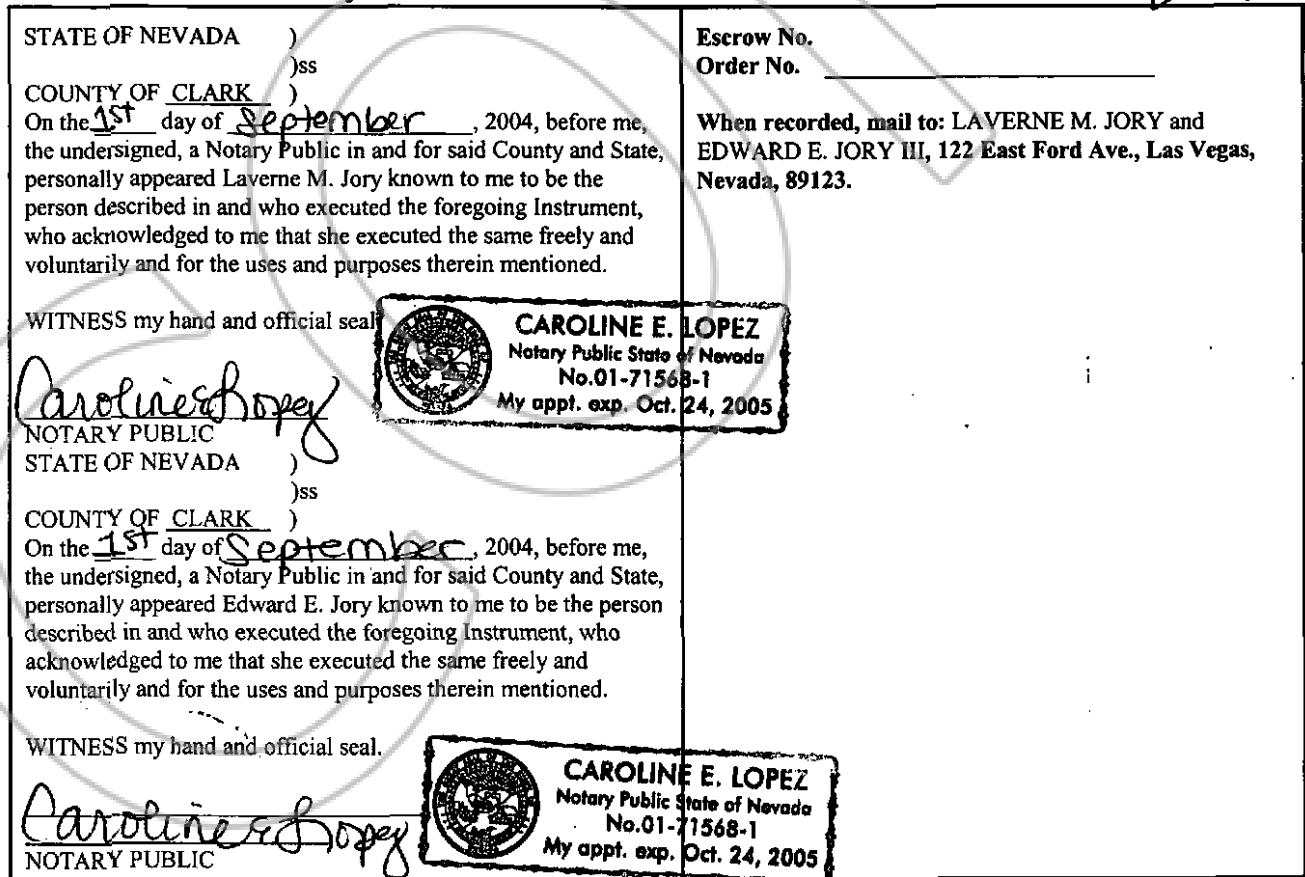 STATE OF NEVADA )
)ss
COUNTY OF CLARK )
On the 1st day of September, 2004, before me,
the undersigned, a Notary Public in and for said County and State,
personally appeared Laverne M. Jory known to me to be the
person described in and who executed the foregoing Instrument,
who acknowledged to me that she executed the same freely and
voluntarily and for the uses and purposes therein mentioned.
WITNESS my hand and official seal
CAROLINE E. LOPEZ
Notary Public State of Nevada
No.01-71568-1
My appt. exp. Oct. 24, 2005
Caroline E Lopez
NOTARY PUBLIC
STATE OF NEVADA )
)ss
COUNTY OF CLARK )
On the 1st day of September, 2004, before me,
the undersigned, a Notary Public in and for said County and State,
personally appeared Edward E. Jory known to me to be the person
described in and who executed the foregoing Instrument, who
acknowledged to me that she executed the same freely and
voluntarily and for the uses and purposes therein mentioned.
WITNESS my hand and official seal.
CAROLINE E. LOPEZ
Notary Public State of Nevada
No.01-71568-1
My appt. exp. Oct. 24, 2005
Caroline E Lopez
NOTARY PUBLIC
Escrow No.
Order No.
When recorded, mail to: LAVERNE M. JORY and
EDWARD E. JORY III, 122 East Ford Ave., Las Vegas,
Nevada, 89123.